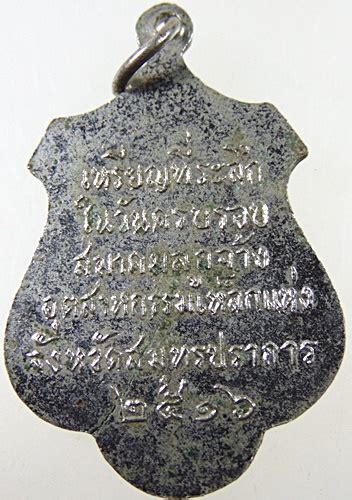 เหรียญที่ระลึก
ในวันครบรอบ
สมาคมลูกจ้าง
อุตสาหกรรมเหล็กแห่ง
จังหวัดสมุทรปราการ
๒๕๑๖